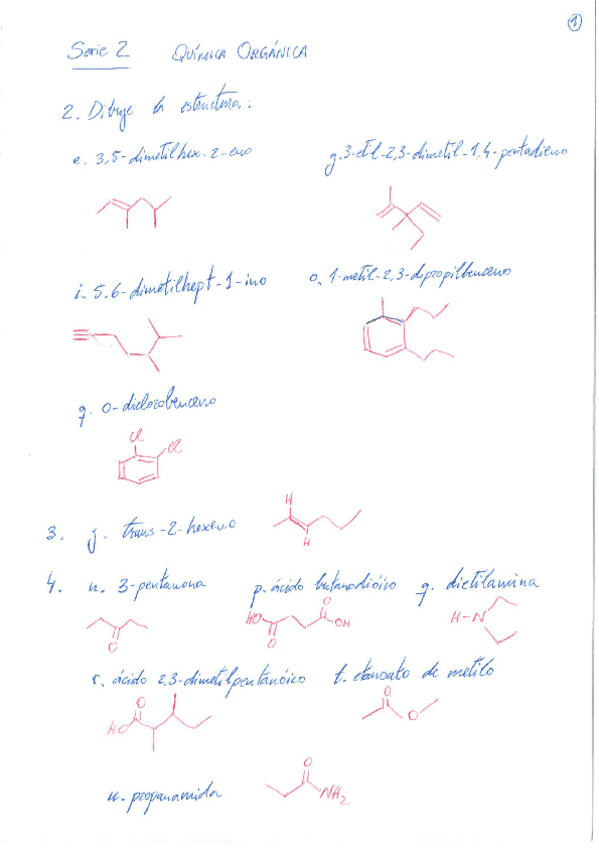 1
Serie 2 QUÍMICA ORGÁNICA
2. Dibuje la estructura:
e. 3,5-dimetilhex-2-eno g. 3-etil-2,3-dimetil-1,4-pentadieno
i. 5,6-dimetilhept-1-ino o. 1-metil-2,3-dipropilbenceno
q. o-diclorobenceno
Cl
Cl
3. j. trans-2-hexeno
H
H
4. n. 3-pentanona p. ácido butanodióico q. dietilamina
O
HO O O OH
H-N
r. ácido 2,3-dimetilpentanóico t. etanoato de metilo
O
HO
O
O
u. propanamida
O
NH2